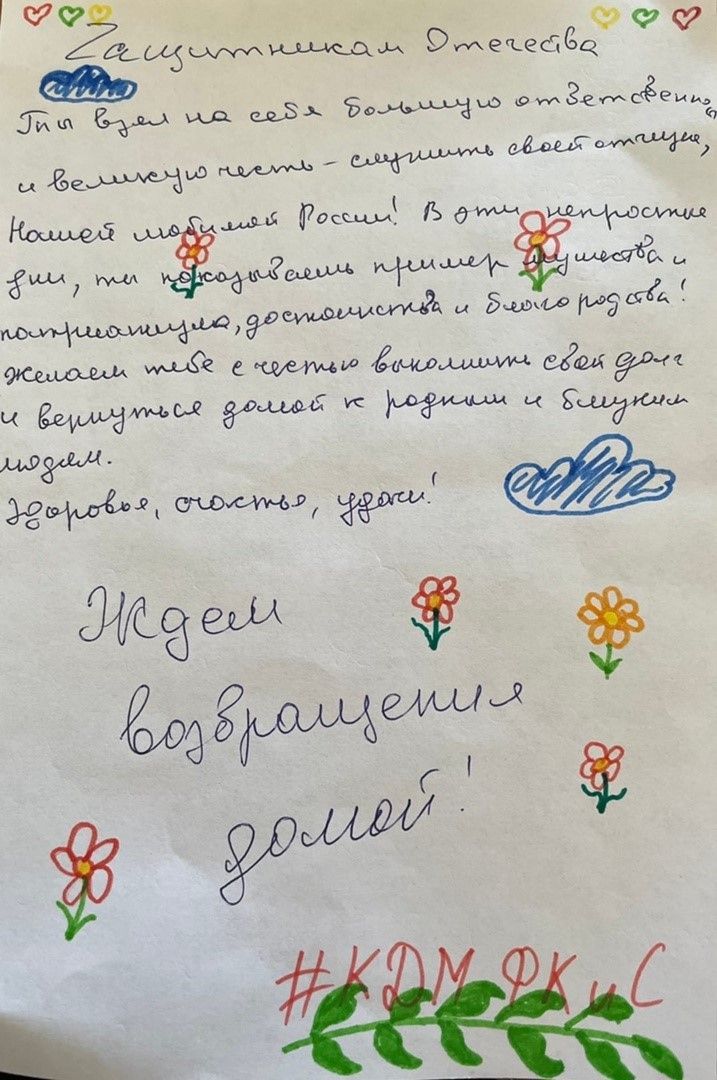 Zащитникам Отечества
Ты взял на себя большую ответственно
и великую честь - служить своей отчизне,
Нашей любимой России! В эти непростые
дни, ты показываешь пример мужества и
патриотизма, достоинства и благородства!
Желаем тебе с честью выполнить свой долг
и вернуться домой к родным и близким
людям.
Здоровья, счастья, удачи!
Ждем
возвращения
домой!
#КДМ ФКиС